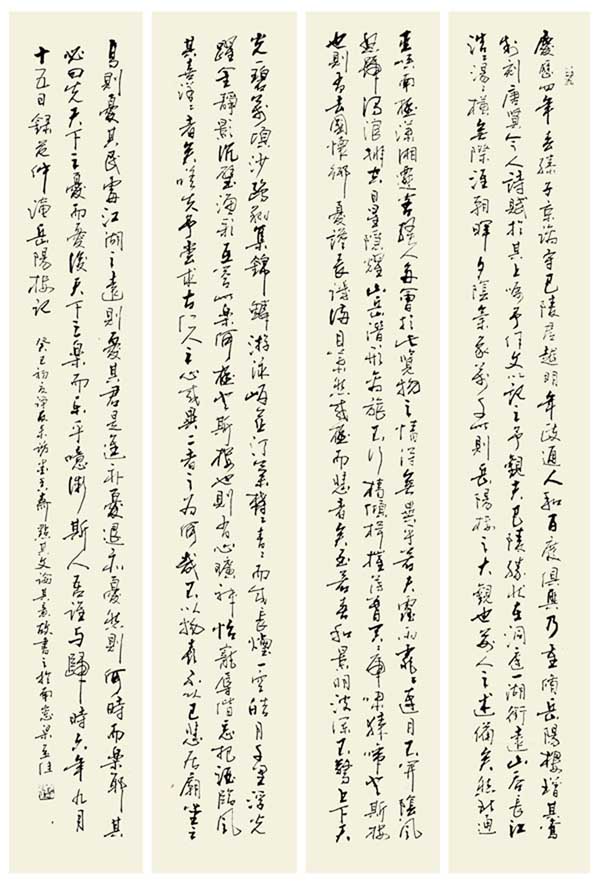 慶曆四年春滕子京謫守巴陵君越明年政通人和百廢俱興乃重脩岳陽樓增其舊
制刻唐賢今人詩賦於其上囑予作文以記之予觀夫巴陵勝狀在洞庭一湖銜遠山吞長江
浩浩湯湯橫無際涯朝暉夕陰氣象萬千此則岳陽樓之大觀也前人之述備矣然北通
巫峽南極瀟湘遷客騷人多會於此覽物之情得無異乎若夫霪雨霏霏連月不開陰風
怒號濁浪排空日星隱耀山岳潛形商旅不行檣傾楫摧薄暮冥冥虎嘯猿啼登斯樓
也則有去國懷鄉憂讒畏譏滿目蕭然感極而悲者矣至若春和景明波瀾不驚上下天
光一碧萬頃沙鷗翔集錦鱗游泳岸芷汀蘭鬱鬱青青而或長煙一空皓月千里浮光
躍金靜影沉璧漁歌互答此樂何極登斯樓也則有心曠神怡寵辱偕忘把酒臨風
其喜洋洋者矣嗟夫予嘗求古仁人之心或異二者之為何哉不以物喜不以己悲居廟堂之
高則憂其民處江湖之遠則憂其君是進亦憂退亦憂然則何時而樂耶其
必曰先天下之憂而憂後天下之樂而樂乎噫微斯人吾誰與歸時六年九月
十五日錄范仲淹岳陽樓記 癸巳初夏 其文論其義故書之於南窓